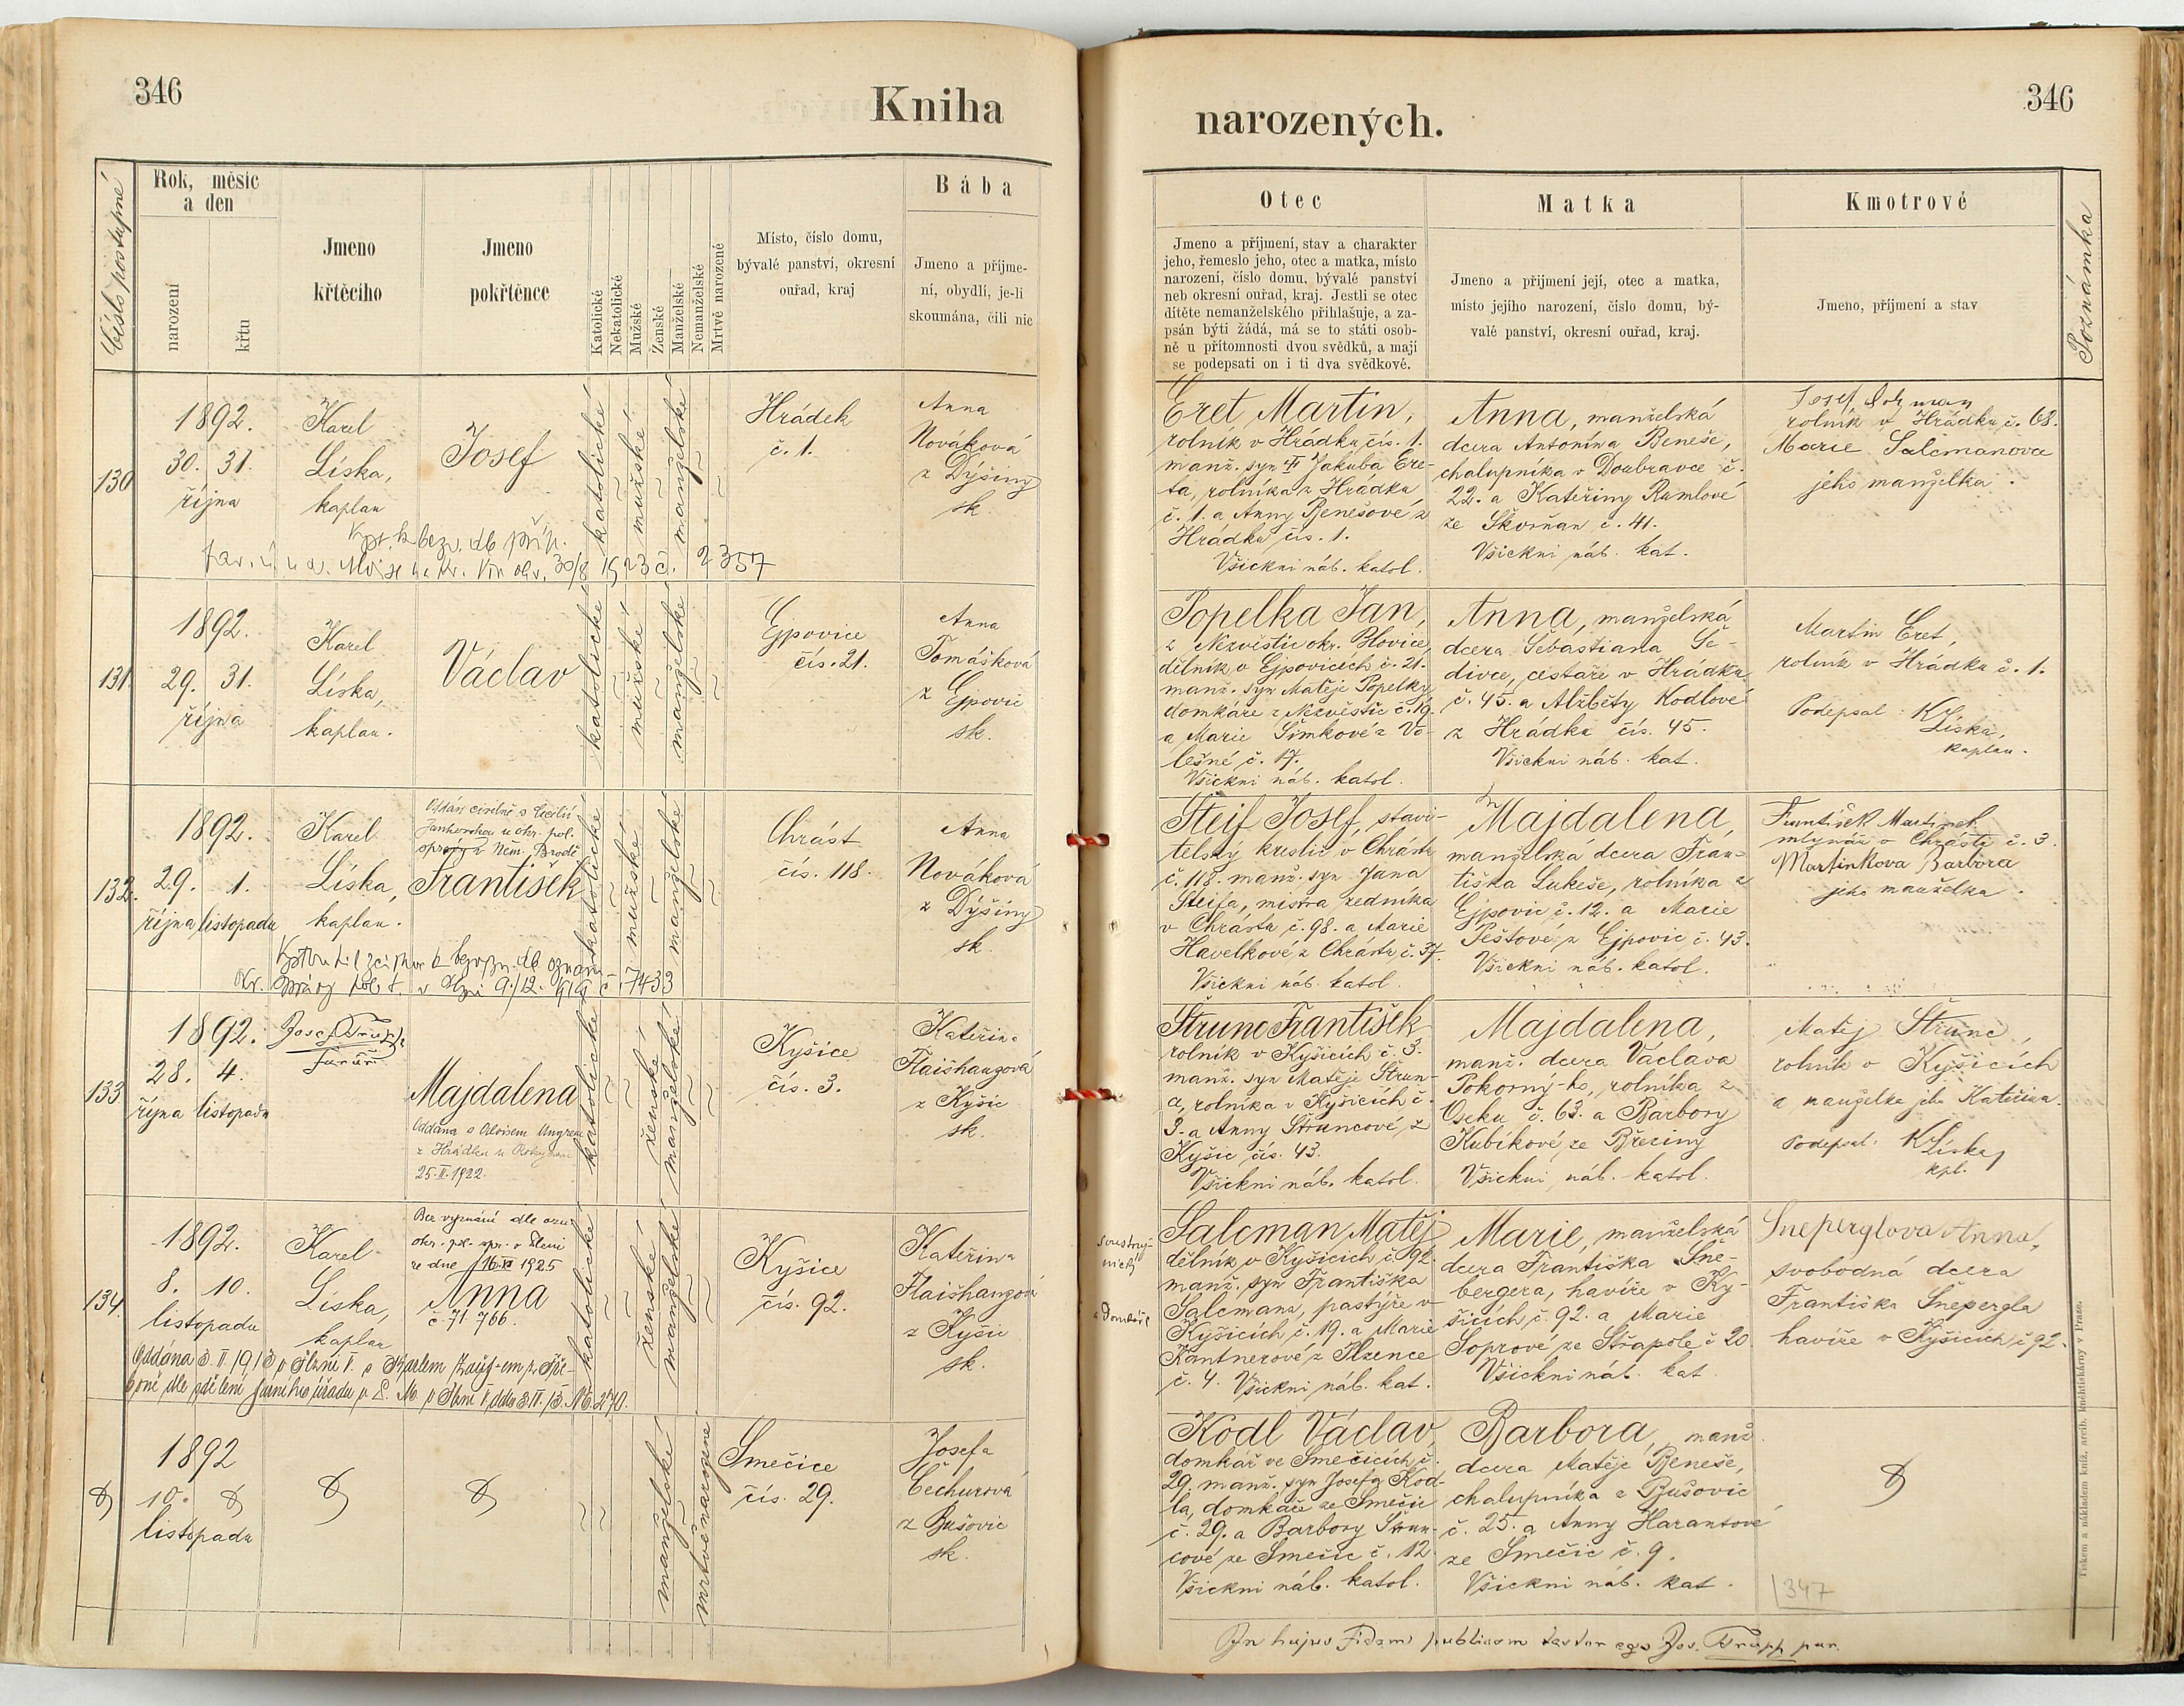 346
Kniha
Číslo postupné
Rok, měsíc
a den
narození
křtu
Jmeno
křtěcího
Jmeno
pokřtěnce
Katolické
Nekatolické
Mužské
Ženské
Manželské
Nemanželské
Mrtvě narozené
Místo, číslo domu,
bývalé panství, okresní
ouřad, kraj
Bába
Jmeno a příjme-
ní, obydlí, je-li
skoumána, čili nic
130
1892.
30. 31.
října
Karel
Líska,
kaplan
Josef
katolické
mužské
manželské
Hrádek
č. 1.
Anna
Nováková
z Dýšiny
sk.
1923 č. 2357
131.
1892.
29. 31.
října
Karel
Líska,
kaplan.
Václav
katolické
mužské
manželské
Ejpovice
čís. 21.
Anna
Tomášková
z Ejpovic
sk.
132.
1892.
29. 1.
října listopadu
Karel
Líska,
kaplan.
Oddán civilně s Cecilií
Jankovskou u okr. pol.
správy v Něm. Brodě
František
katolické
mužské
manželské
Chrást
čís. 118.
Anna
Nováková
z Dýšiny
sk.
133
1892.
28. 4.
října listopadu
Josef Trupp
farář
Majdalena
Oddána s Aloisem Ungrem
z Hrádku u Rokycan
25.II.1922.
katolické
ženské
manželské
Kyšice
čís. 3.
Kateřina
Flaišhangová
z Kyšic
sk.
134.
1892.
8. 10.
listopadu
Karel
Líska,
kaplan
Bez vyznání dle ozn.
okr. pol. spr. v Plzni
ze dne 16.XI 1925
Anna
č 71 766.
katolické
ženské
manželské
Kyšice
čís. 92.
Kateřina
Flaišhangová
z Kyšic
sk.
1892
10.
listopadu
manželské
mrtvě narozené
Smečice
čís. 29.
Josefa
Čechurová
z Bušovic
sk.
narozených.
346
Otec
Jmeno a příjmení, stav a charakter
jeho, řemeslo jeho, otec a matka, místo
narození, číslo domu, bývalé panství
neb okresní ouřad, kraj. Jestli se otec
dítěte nemanželského přihlašuje, a za-
psán býti žádá, má se to státi osob-
ně u přítomnosti dvou svědků, a mají
se podepsati on i ti dva svědkové.
Matka
Jmeno a příjmení její, otec a matka,
místo jejího narození, číslo domu, bý-
valé panství, okresní ouřad, kraj.
Kmotrové
Jmeno, příjmení a stav
Poznámka
Eret Martin,
rolník v Hrádku čís. 1.
manž. syn † Jakuba Ere-
ta, rolníka z Hrádku
č. 1. a Anny Benešové z
Hrádku čís. 1.
Všickni náb. katol.
Anna, manželská
dcera Antonína Beneše,
chalupníka v Doubravce č.
22. a Kateřiny Rumlové
ze Škvrňan č. 41.
Všickni náb. kat.
Josef
rolník v Hrádku č. 68.
Marie Salcmanova
jeho manželka.
Popelka Jan,
z Nezvěstic okr. Blovice,
dělník v Ejpovicích č. 21.
manž. syn Matěje Popelky
domkáře z Nezvěstic č. 19.
a Marie Šimkové z Vo-
lešné č. 17.
Všickni náb. katol.
Anna, manželská
dcera Šebastiana Še-
divce, cestáře v Hrádku
č. 45. a Alžběty Kodlové
z Hrádku čís. 45.
Všickni náb. kat.
Martin Eret,
rolník v Hrádku č. 1.
Podepsal: K Líska,
kaplan.
Šteif Josef, stavi-
telský kreslič v Chrástu
č. 118. manž. syn Jana
Šteifa, mistra zedníka
v Chrástu č. 98. a Marie
Havelkové z Chrástu, č. 37.
Všickni náb. katol.
Majdalena,
manželská dcera Fran-
tiška Lukeše, rolníka z
Ejpovic č. 12. a Marie
Peštové z Ejpovic č. 43.
Všickni náb. katol.
František Martinek
mlynář v Chrástě č. 3.
Martinkova Barbora
jeho manželka.
Štrunc František
rolník v Kyšicích č. 3.
manž. syn Matěje Štrun-
a, rolníka v Kyšicích č.
3. a Anny Štruncové, z
Kyšic čís. 43.
Všickni náb. katol.
Majdalena,
manž. dcera Václava
Pokorny-ho, rolníka z
Oseku č. 63. a Barbory
Kubíkové ze Březiny
Všickni náb. katol.
Matěj Štrunc,
rolník v Kyšicích
a manželka jeho Kateřina.
Podepsal: K Líska,
kpl.
Salcman Matěj
dělník v Kyšicích č. 92.
manž. syn Františka
Salcmana, pastýře v
Kyšicích, č. 19. a Marie
Kantnerové z Plzence
č. 4. Všickni náb. kat.
Marie, manželská
dcera Františka Šne-
bergera, havíře v Ky-
šicích, č. 92. a Marie
Soprové ze Střapole č 20
Všickni náb. kat
Sneperglova Anna,
svobodná dcera
Františka Šnepergla
havíře v Kyšicích č 92.
Kodl Václav,
domkář ve Smečicích č.
29. manž. syn Josefa Kod-
la, domkáře ze Smečic
č. 29. a Barbory Štrun-
cové ze Smečic č. 12.
Všickni náb. katol.
Barbora, manž.
dcera Matěje Beneše,
chalupníka z Bušovic
č. 25. a Anny Harantové
ze Smečic č. 9.
Všickni náb. kat.
347
In hujus fidem publicam testor ego Jos. Trupp par.